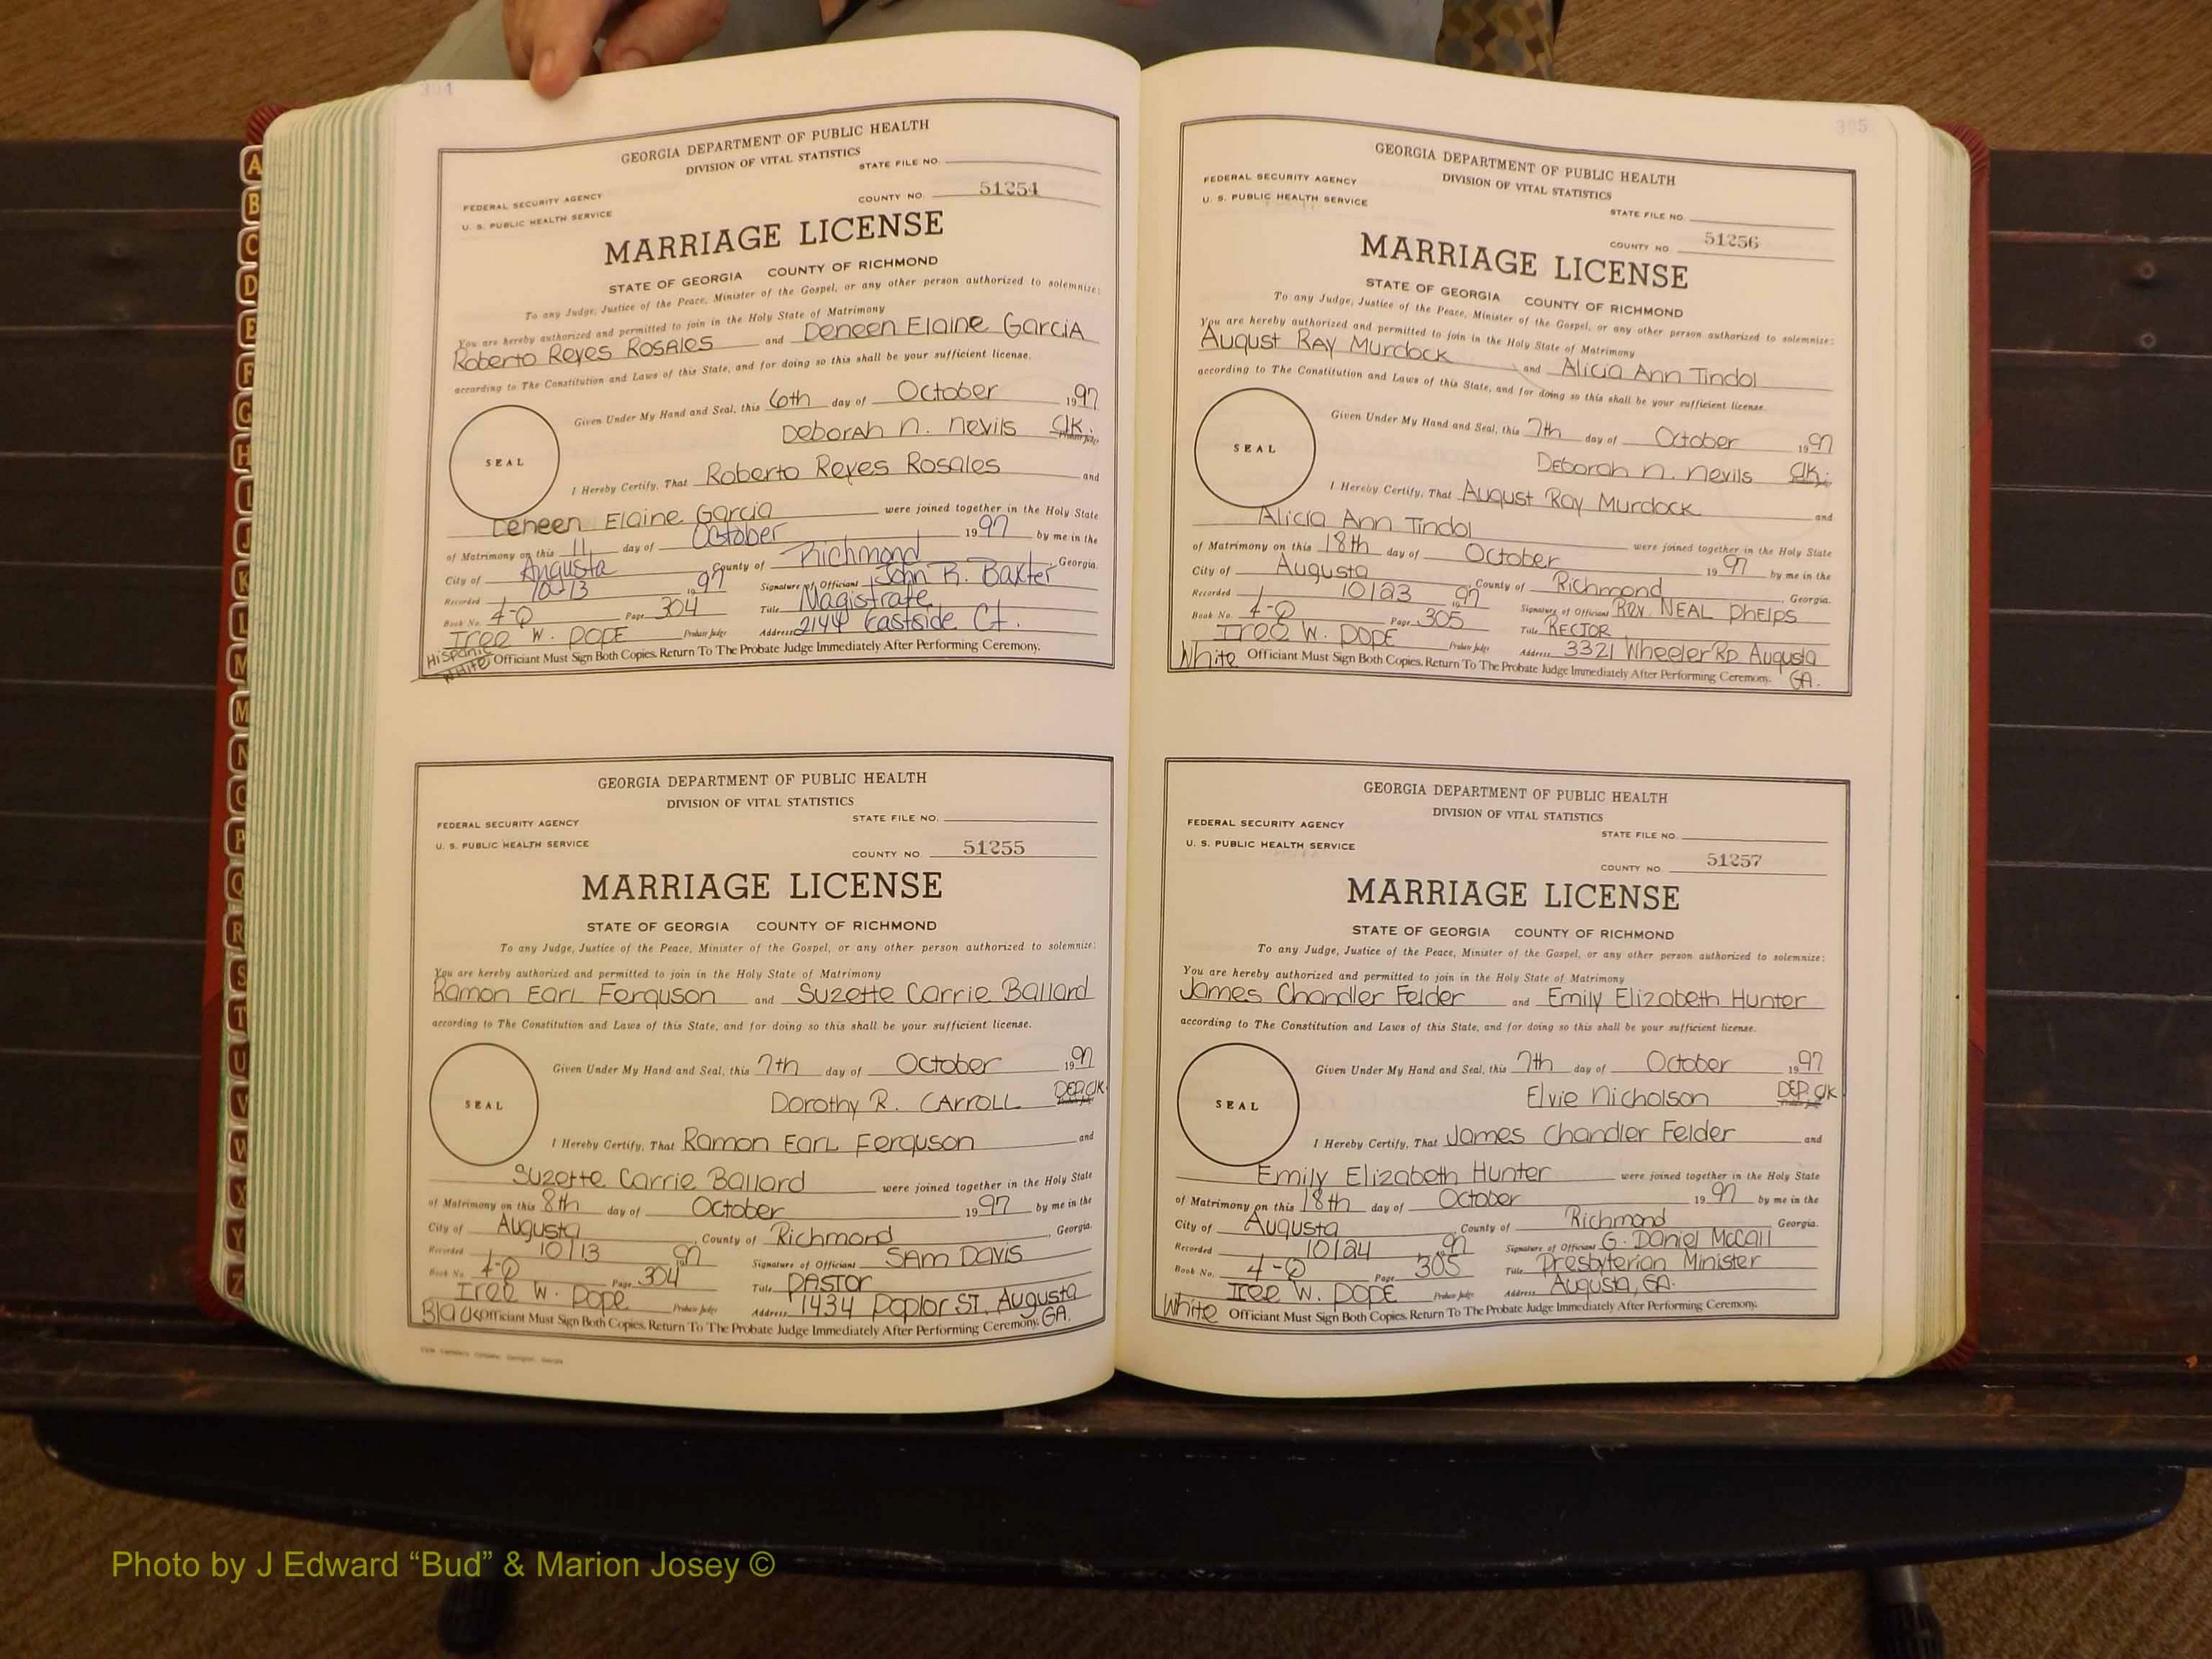 304
GEORGIA DEPARTMENT OF PUBLIC HEALTH
DIVISION OF VITAL STATISTICS
STATE FILE NO.
FEDERAL SECURITY AGENCY
U. S. PUBLIC HEALTH SERVICE
COUNTY NO. 51254
MARRIAGE LICENSE
STATE OF GEORGIA COUNTY OF RICHMOND
To any Judge, Justice of the Peace, Minister of the Gospel, or any other person authorized to solemnize:
You are hereby authorized and permitted to join in the Holy State of Matrimony
Roberto Reyes Rosales and Deneen Elaine Garcia
according to The Constitution and Laws of this State, and for doing so this shall be your sufficient license.
Given Under My Hand and Seal, this 6th day of October 1997
Deborah N. Nevils Clk.
SEAL
I Hereby Certify, That Roberto Reyes Rosales and
Deneen Elaine Garcia were joined together in the Holy State
of Matrimony on this 11 day of October 1997 by me in the
City of Augusta County of Richmond, Georgia.
Recorded 10/13 1997 Signature of Officiant John R. Baxter
Book No. 4-Q Page 304 Title Magistrate
Iree W. Pope Probate Judge Address 2144 Eastside Ct.
Hispanic
White Officiant Must Sign Both Copies. Return To The Probate Judge Immediately After Performing Ceremony.
GEORGIA DEPARTMENT OF PUBLIC HEALTH
DIVISION OF VITAL STATISTICS
STATE FILE NO.
FEDERAL SECURITY AGENCY
U. S. PUBLIC HEALTH SERVICE
COUNTY NO. 51255
MARRIAGE LICENSE
STATE OF GEORGIA COUNTY OF RICHMOND
To any Judge, Justice of the Peace, Minister of the Gospel, or any other person authorized to solemnize:
You are hereby authorized and permitted to join in the Holy State of Matrimony
Ramon Earl Ferguson and Suzette Carrie Ballard
according to The Constitution and Laws of this State, and for doing so this shall be your sufficient license.
Given Under My Hand and Seal, this 7th day of October 1997
Dorothy R. Carroll DEP. Clk.
SEAL
I Hereby Certify, That Ramon Earl Ferguson and
Suzette Carrie Ballard were joined together in the Holy State
of Matrimony on this 8th day of October 1997 by me in the
City of Augusta, County of Richmond, Georgia.
Recorded 10/13 1997 Signature of Officiant Sam Davis
Book No. 4-Q Page 304 Title Pastor
Iree W. Pope Probate Judge Address 1434 Poplar St. Augusta GA.
Black Officiant Must Sign Both Copies. Return To The Probate Judge Immediately After Performing Ceremony.
305
GEORGIA DEPARTMENT OF PUBLIC HEALTH
DIVISION OF VITAL STATISTICS
FEDERAL SECURITY AGENCY
U. S. PUBLIC HEALTH SERVICE
STATE FILE NO.
COUNTY NO 51256
MARRIAGE LICENSE
STATE OF GEORGIA COUNTY OF RICHMOND
To any Judge, Justice of the Peace, Minister of the Gospel, or any other person authorized to solemnize:
You are hereby authorized and permitted to join in the Holy State of Matrimony
August Ray Murdock and Alicia Ann Tindol
according to The Constitution and Laws of this State, and for doing so this shall be your sufficient license.
Given Under My Hand and Seal, this 7th day of October 1997
Deborah N. Nevils Clk.
SEAL
I Hereby Certify, That August Ray Murdock and
Alicia Ann Tindol were joined together in the Holy State
of Matrimony on this 18th day of October 1997 by me in the
City of Augusta, County of Richmond, Georgia.
Recorded 10/23 1997 Signature of Officiant Rev. Neal Phelps
Book No. 4-Q Page 305 Title Rector
Iree W. Pope Probate Judge Address 3321 Wheeler Rd Augusta GA.
White Officiant Must Sign Both Copies. Return To The Probate Judge Immediately After Performing Ceremony.
GEORGIA DEPARTMENT OF PUBLIC HEALTH
DIVISION OF VITAL STATISTICS
FEDERAL SECURITY AGENCY
U. S. PUBLIC HEALTH SERVICE
STATE FILE NO.
COUNTY NO 51257
MARRIAGE LICENSE
STATE OF GEORGIA COUNTY OF RICHMOND
To any Judge, Justice of the Peace, Minister of the Gospel, or any other person authorized to solemnize:
You are hereby authorized and permitted to join in the Holy State of Matrimony
James Chandler Felder and Emily Elizabeth Hunter
according to The Constitution and Laws of this State, and for doing so this shall be your sufficient license.
Given Under My Hand and Seal, this 7th day of October 1997
Elvie Nicholson DEP. Clk
SEAL
I Hereby Certify, That James Chandler Felder and
Emily Elizabeth Hunter were joined together in the Holy State
of Matrimony on this 18th day of October 1997 by me in the
City of Augusta County of Richmond Georgia.
Recorded 10/24 1997 Signature of Officiant G. Daniel McCall
Book No. 4-Q Page 305 Title Presbyterian Minister
Iree W. Pope Probate Judge Address Augusta, GA.
White Officiant Must Sign Both Copies. Return To The Probate Judge Immediately After Performing Ceremony.
A
B
C
D
E
F
G
H
I
J
K
L
M
M
N
O
P
Q
R
S
T
U
V
W
X
Y
Z
Photo by J Edward “Bud” & Marion Josey ©